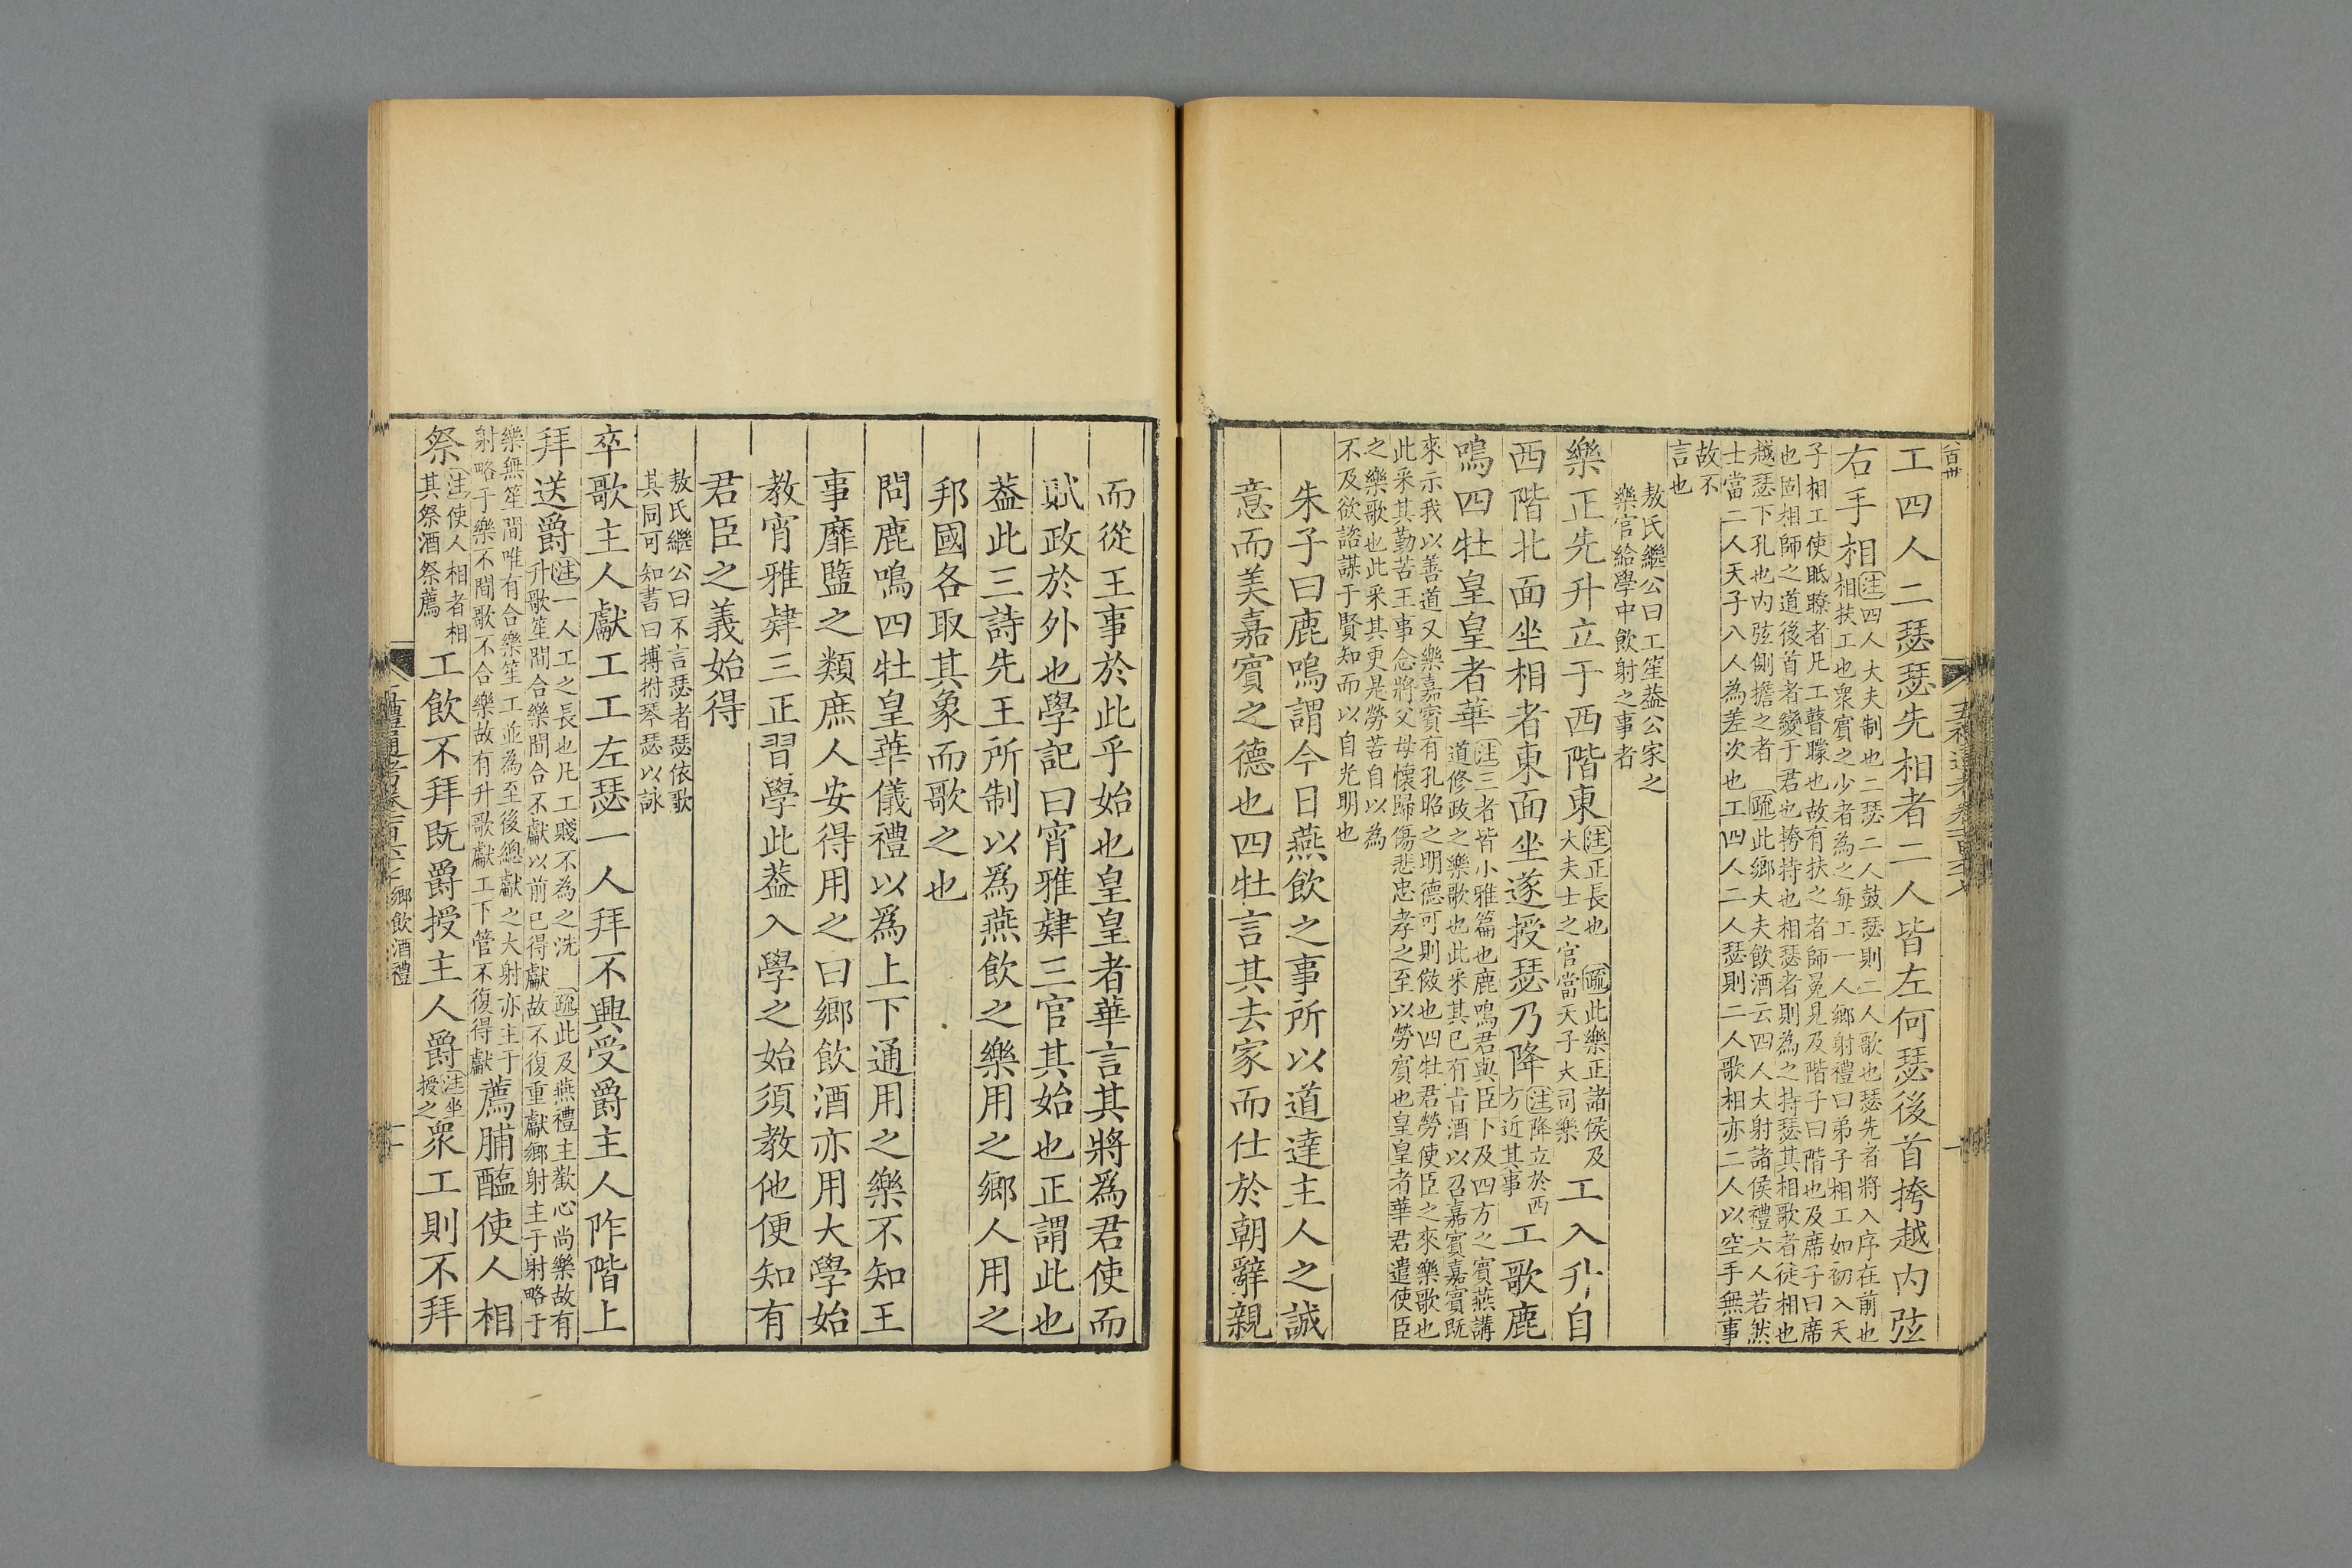 工四人二瑟瑟先相者二人皆左何瑟後首挎越内弦
右手相
注四人大夫制也二瑟二人鼓瑟則二人歌也瑟先者將入序在前也
相扶工也衆賓之少者為之每工一人鄉射禮曰弟子相工如初入天
子相工使眡瞭者凡工瞽矇也故有扶之者師冕見及階子曰階也及席子曰席
也固相師之道後首者變于君也挎持也相瑟者則為之持瑟其相歌者徒相也
越瑟下孔也内弦側擔之者 疏此鄉大夫飲酒云四人大射諸侯禮六人若然
士當二人天子八人為差次也工四人二人瑟則二人歌相亦二人以空手無事
故不
言也
敖氏繼公曰工笙葢公家之
樂官給學中飲射之事者
樂正先升立于西階東
注正長也 疏此樂正諸侯及
大夫士之官當天子大司樂
工入升自
西階北面坐相者東面坐遂授瑟乃降
注降立於西
方近其事
工歌鹿
鳴四牡皇皇者華
注三者皆小雅篇也鹿鳴君與臣下及四方之賓燕講
道修政之樂歌也此采其已有旨酒以召嘉賓嘉賓既
來示我以善道又樂嘉賓有孔昭之明德可則傚也四牡君勞使臣之來樂歌也
此采其勤苦王事念將父母懷歸傷悲忠孝之至以勞賓也皇皇者華君遣使臣
之樂歌也此采其更是勞苦自以為
不及欲諮謀于賢知而以自光明也
朱子曰鹿鳴謂今日燕飲之事所以道達主人之誠
意而美嘉賓之德也四牡言其去家而仕於朝辭親
而從王事於此乎始也皇皇者華言其將爲君使而
賦政於外也學記曰宵雅肄三官其始也正謂此也
葢此三詩先王所制以爲燕飲之樂用之鄉人用之
邦國各取其象而歌之也
問鹿鳴四牡皇華儀禮以爲上下通用之樂不知王
事靡盬之類庶人安得用之曰鄉飲酒亦用大學始
教宵雅肄三正習學此葢入學之始須教他便知有
君臣之義始得
敖氏繼公曰不言瑟者瑟依歌
其同可知書曰搏拊琴瑟以詠
卒歌主人獻工工左瑟一人拜不興受爵主人阼階上
拜送爵
注一人工之長也凡工賤不為之洗 疏此及燕禮主歡心尚樂故有
升歌笙間合樂間合不獻以前已得獻故不復重獻鄉射主于射略于
樂無笙間唯有合樂笙工並為至後總獻之大射亦主于
射略于樂不間歌不合樂故有升歌獻工下管不復得獻
薦脯醢使人相
祭
注使人相者相
其祭酒祭薦
工飲不拜既爵授主人爵
注坐
授之
衆工則不拜
鄉飲酒禮